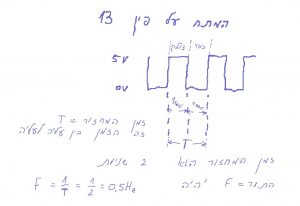 המתח על פין 13
דולק כבוי
5V
0V
1 sec 1 sec
T
זמן המחזור = T
זה הזמן בין עליה לעליה
זמן המחזור הוא 2 שניות
התדר = F יהיה
F = 1/T = 1/2 = 0,5Hz